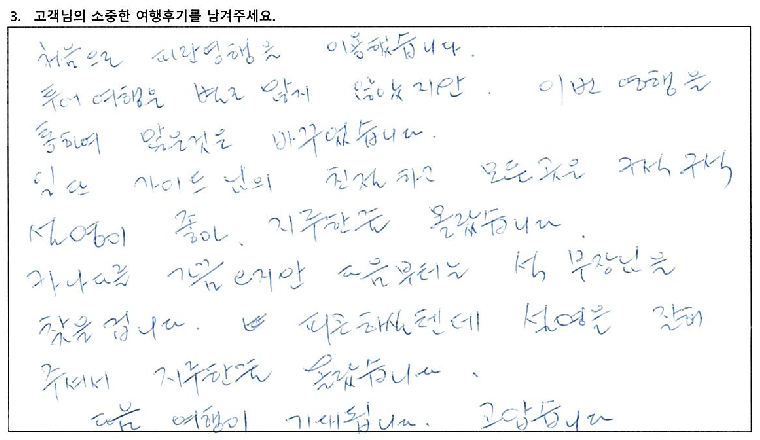 3. 고객님의 소중한 여행후기를 남겨주세요.
처음으로 파란여행을 이용했습니다.
투어 여행은 별로 않았지만. 이번 여행을
통하여 많은것을 바꾸었습니다.
일단 가이드님의 친절하고 모든곳을 구석구석
설명이 좋아. 지루한줄 몰랐습니다.
캐나다를 가끔 오지안 다음부터는 석부장님을
찾을겁니다. 피곤하실텐데 설명을 잘해
주셔서 지루한줄 몰랐습니다.
다음 여행이 기대됩니다. 고맙습니다